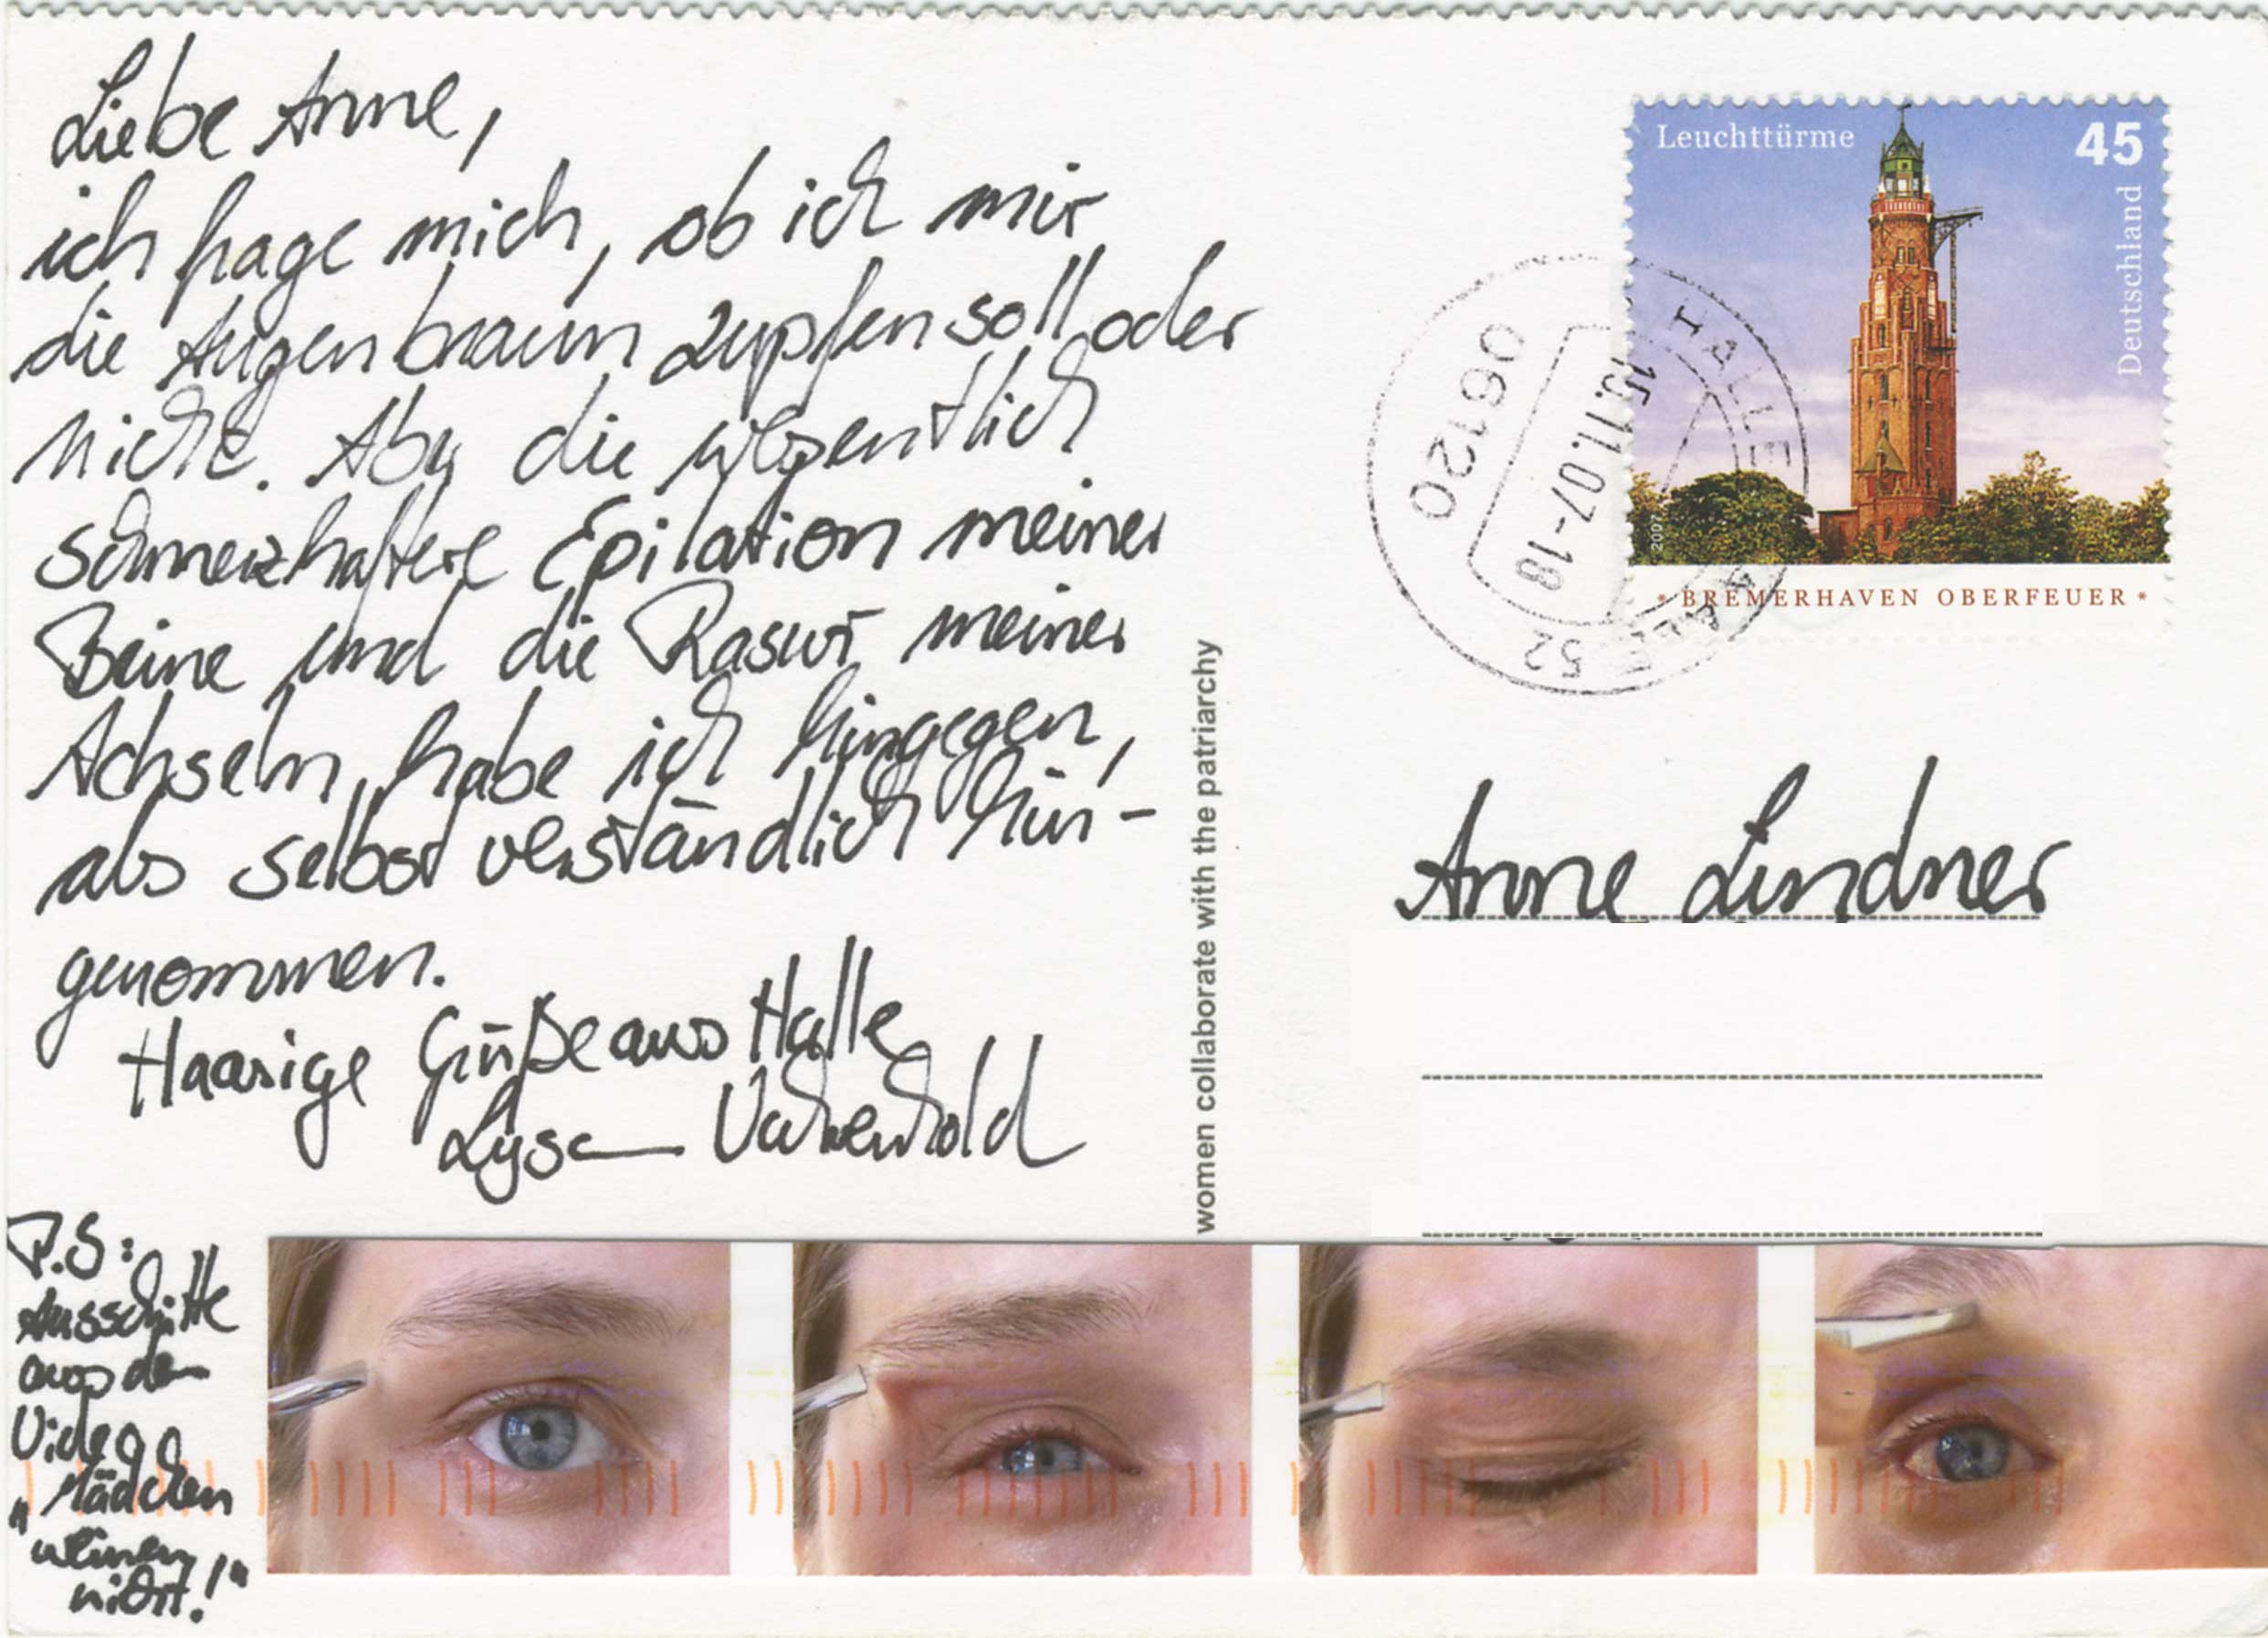 Liebe Anne,
ich frage mich, ob ich mir
die Augenbraun zupfen soll oder
nicht. Aber die wesentlich
schmerzhaftere Epilation meiner
Beine und die Rasur meiner
Achseln, habe ich hingegen,
als selbstverständlich hin-
genommen.
Haarige Grüße aus Halle
Lysann
P.S:
Ausschnitte
aus dem
Video
„Mädchen
weinen
nicht!"
women collaborate with the patriarchy
Leuchttürme
45
Deutschland
2007
* BREMERHAVEN OBERFEUER *
HALLE
06120
15.11.07-18
52
Anne Lindner